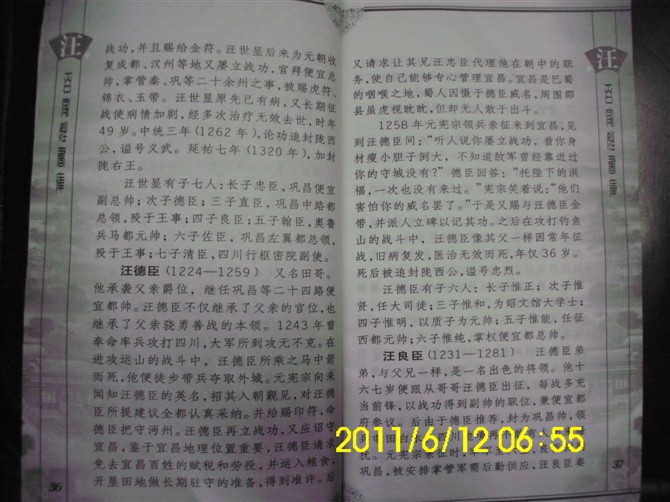 战功，并且赐给金符。汪世显后来为元朝收
复成都、汉州等地又屡立战功，官拜便宜总
帅，掌管秦、巩等二十余州之事，被赐虎符、
锦衣、玉带。汪世显原先已有病，又长期征
战使病情加剧，经多次治疗无效去世，时年
49岁。中统三年(1262年)，论功追封陇西
公，谥号义武。延祐七年(1320年)，加封
陇右王。
汪世显有子七人：长子忠臣，巩昌便宜
副总帅；次子德臣；三子直臣，巩昌中路都
总领，殁于王事；四子良臣；五子翰臣，奥鲁
兵马都元帅；六子佐臣，巩昌左翼都总领，
殁于王事；七子清臣，四川行枢密院副使。
汪德臣(1224—1259) 又名田哥。
他承袭父亲爵位，继任巩昌等二十四路便
宜都帅。汪德臣不仅继承了父亲的官位，也
继承了父亲骁勇善战的本领。1243年曾
奉命率兵攻打四川，大军所到攻无不克。在
进攻运山的战斗中，汪德臣所乘之马中箭
而死，他便徒步带兵夺取外城。元宪宗向来
闻知汪德臣的英名，招其入朝觐见，对汪德
臣所提建议全都认真采纳。并给赐印符，命
德臣把守沔州。汪德臣再立战功，又应诏守
宜昌，鉴于宜昌地理位置重要，汪德臣请求
免去宜昌百姓的赋税和劳役，并运入粮食，
开垦田地做长期驻守的准备，得到准许。后
36
汪
又请求让其兄汪忠臣代理他在朝中的职
务，使自己能够专心管理宜昌。宜昌是巴蜀
的咽喉之地，蜀人因慑于德臣威名，周围郡
县虽虎视眈眈，但却无人敢于出斗。
1258年元宪宗领兵亲征来到宜昌，见
到汪德臣问：“听人说你屡立战功，看你身
材瘦小胆子倒大，不知道敌军曾经靠近过
你的守城没有?”德臣回答：“托陛下的洪
福，一次也没有来过。”宪宗笑着说：“他们
害怕你的威名罢了。”于是又赐与汪德臣金
带，并派人立碑以记其功。之后在攻打钓鱼
山的战斗中，汪德臣像其父一样因常年征
战，旧病复发，医治无效而死，年仅36岁。
死后被追封陇西公，谥号忠烈。
汪德臣有子六人：长子惟正；次子惟
贤，任大司徒；三子惟和，为昭文馆大学士；
四子惟明，以质子为元帅；五子惟能，任征
西都元帅；六子惟纯，掌权便宜都总帅。
汪良臣(1231—1281) 汪德臣弟
弟，与父兄一样，是一名出色的将领。他十
六七岁便跟从哥哥汪德臣出征，每战多充
当前锋，以战功得到副帅的职位，兼便宜都
府参议。后由于德臣推荐，封为巩昌帅，领
扰。元宪宗亲征时，
巩昌，被安排掌管军需后勤供应，汪良臣要
37
汪
2011/6/12 06:55